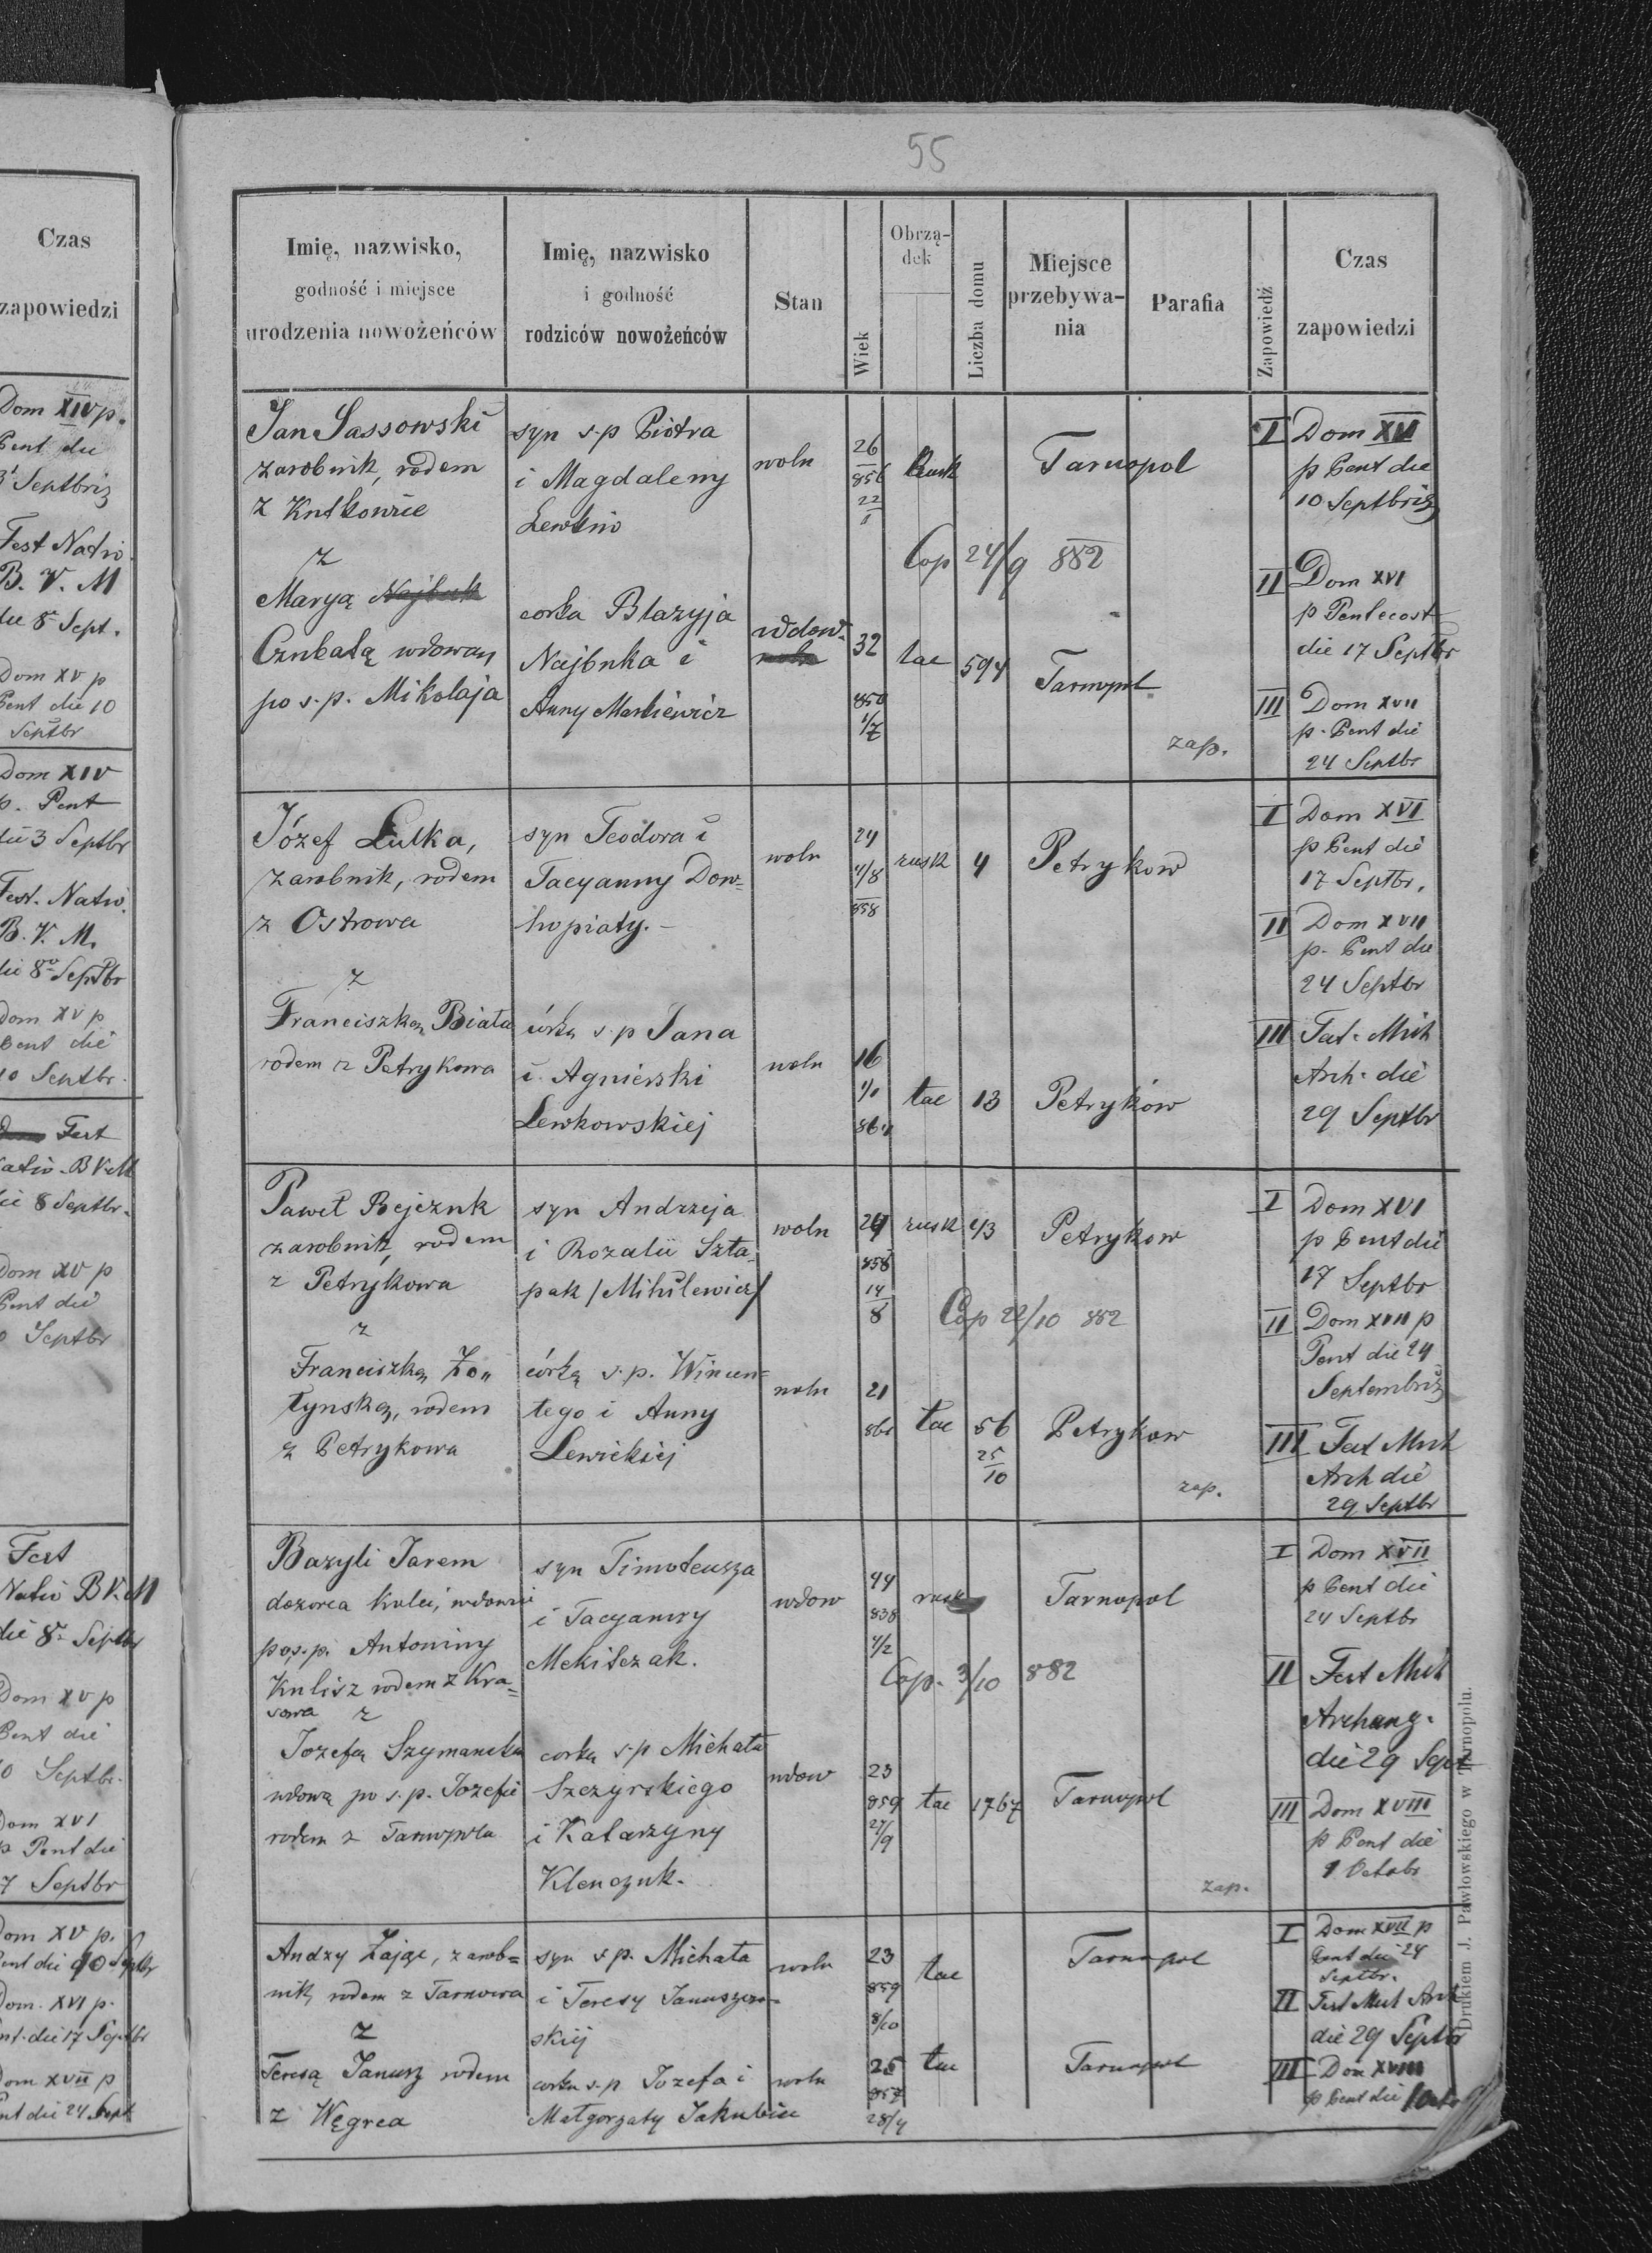 Czas
zapowiedzi
Dom XIV p.
Pent die
3 Septbris
Fest Nativ.
B. V. M
die 8 Sept.
Dom XV p
Pent die 10
Septbr
Dom XIV
p. Pent
die 3 Septbr
Fest. Nativ.
B. V. M.
die 8 Septbr
Dom XV p
Pent die
10 Septbr.
Fest
Nativ. B V M
die 8 Septbr.
Dom XV p
Pent die
Septbr
Fest
Nativ B V. M
die 8 Septbr
Dom XV p
Pent die
10 Septbr.
Dom XVI
p Pent die
17 Septbr
Dom XV p.
Pent die 10 Septbr
Dom. XVI p.
Pent. die 17 Septbr
Dom XVII p
Pent die 24 Sept
55
Imię, nazwisko,
godność i miejsce
urodzenia nowożeńców
Imię, nazwisko
i godność
rodziców nowożeńców
Stan
Wiek
Obrzą-
dek
Liczba domu
Miejsce
przebywa-
nia
Parafia
Zapowiedź
Czas
zapowiedzi
Jan Sassowski
zarobnik, rodem
z Kutkowie
z
Maryą Najbuk
Czubatą wdową
po s.p. Mikołaja
syn s.p Piotra
i Magdaleny
corka Błazyja
Najbuka i
Anny Markiewicz
woln
wdow.
woln
26
856
22
32
850
1/7
Rusk
Cop 24/9 882
łac
594
Tarnopol
Tarnopol
zap.
I Dom XV
p Pent die
10 Septbris
II Dom XVI
p Pentecost
die 17 Septbr
III Dom XVII
p. Pent die
24 Septbr
Józef Lulka,
zarobnik, rodem
z Ostrowa
z
Franciszką Białą
rodem z Petrykowa
syn Teodora i
Tacyanny Dow=
hopiaty. -
córką s.p Jana
i Agnieszki
Lewkowskiej
woln
woln
24
4/8
858
16
1/1
rusk
łac
4
13
Petrykow
Petryków
I Dom XVI
p Pent die
17 Septbr.
II Dom XVII
p. Pent die
24 Septbr
III Fest. Mich
Arch. die
29 Septbr
Paweł Bejczuk
zarobnik, rodem
z Petrykowa
z
Franciszką Zo„
łynską, rodem
z Petrykowa
syn Andrzeja
i Rozalii Szła-
pak / Mihilewicz /
córką s.p. Wincen=
tego i Anny
Lewickiej
woln
woln
24
858
14
8
21
861
rusk
łac
43
56
25
10
Cop 22/10 882
Petrykow
Petrykow
zap.
I Dom XVI
p Pent die
17 Septbr
II Dom XVII p
Pent die 24
Septembris
III Fest Mich
Arch die
29 Septbr
Bazyli Jarem
dozorca kolei, wdowiec
po s.p. Antoniny
Kulisz rodem z Kra=
sowa z
Jozefą Szymanską
wdową po s.p. Jozefie
rodem z Tarnopola
syn Timoteusza
i Tacyanny
Mekitczak.
corką s.p Michała
Szczyrskiego
i Katarzyny
Klenczuk.
wdow
wdow
44
838
4/2
23
859
27/9
rusk
łac
1767
Cop. 3/10 882
Tarnopol
Tarnopol
zap.
I Dom XVII
p Pent die
24 Septbr
II Fest Mich
Archang.
die 29 Sept
III Dom XVIII
p Pent die
1 Octobr
Andzy Zając, zarob=
nik, rodem z Tarnowa
z
Teresą Janusz rodem
z Węgrea
syn s.p. Michała
i Teresy
skiej
corka s.p Jozefa i
Małgorzaty Jakubiec
woln
woln
23
859
8/10
25
857
28/4
łac
łac
Tarnopol
Tarnopol
I Dom XVII p
Pent die 24
Septbr.
II Fest Mich Arch
die 29 Septbr
III Dom XVIII
p Pent die 1 Octo
Drukiem J. Pawłowskiego w Tarnopolu.